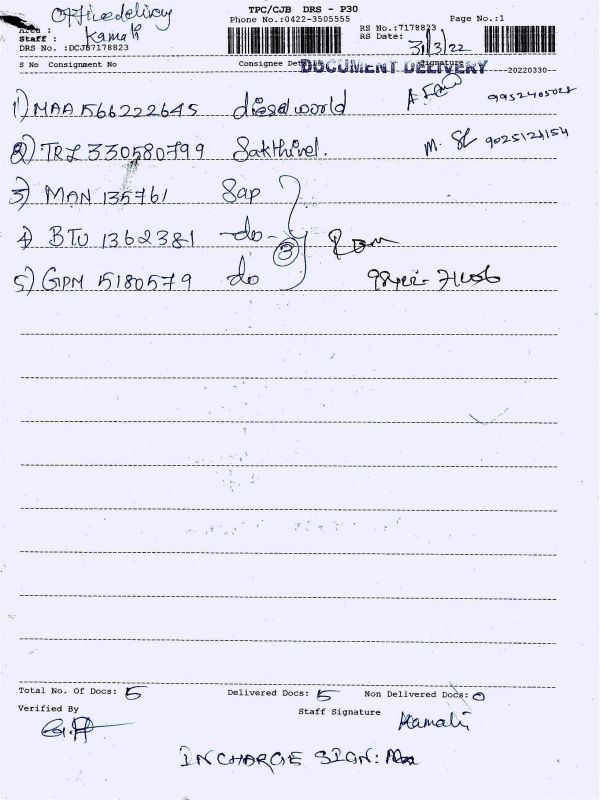 Office delivery
TPC/CJB DRS - P30
Phone No.:0422-3505555
RS No.:7178823
RS Date: 31/3/22
Page No.:1
Area :
Staff : Kamali
DRS No. :DCJB7178823
S No Consignment No Consignee Signature
DOCUMENT DELIVERY
20220330
1) MAA 566222645 diesel world
2) TRL 330580799 Sakthivel. M. 9025124154
3) MAN 135761 Sap
4) BTU 1362381 -do-
3
5) GPM 5180579 do
Total No. Of Docs: 5 Delivered Docs: 5 Non Delivered Docs: 0
Verified By Staff Signature Kamali
INCHARGE SIGN: